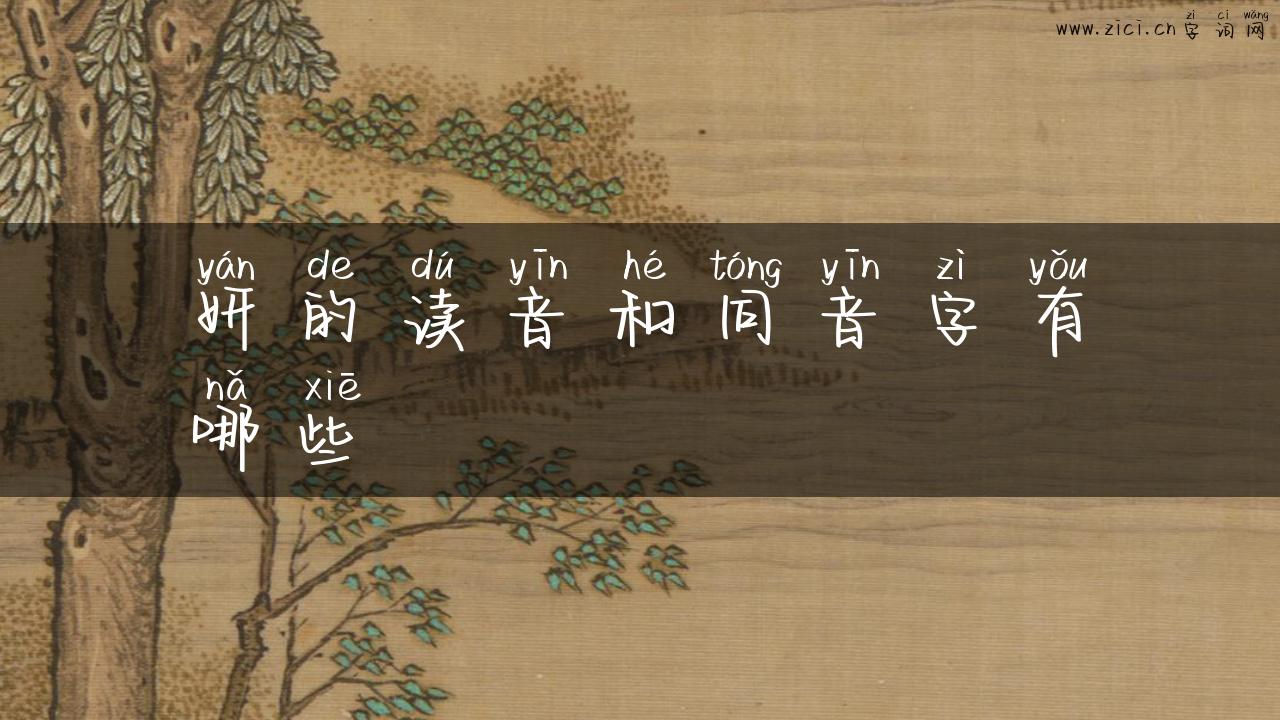 zì cí wǎng
www.zici.cn 字词网
yán de dú yīn hé tóng yīn zì yǒu
妍的读音和同音字有
nǎ xiē
哪些